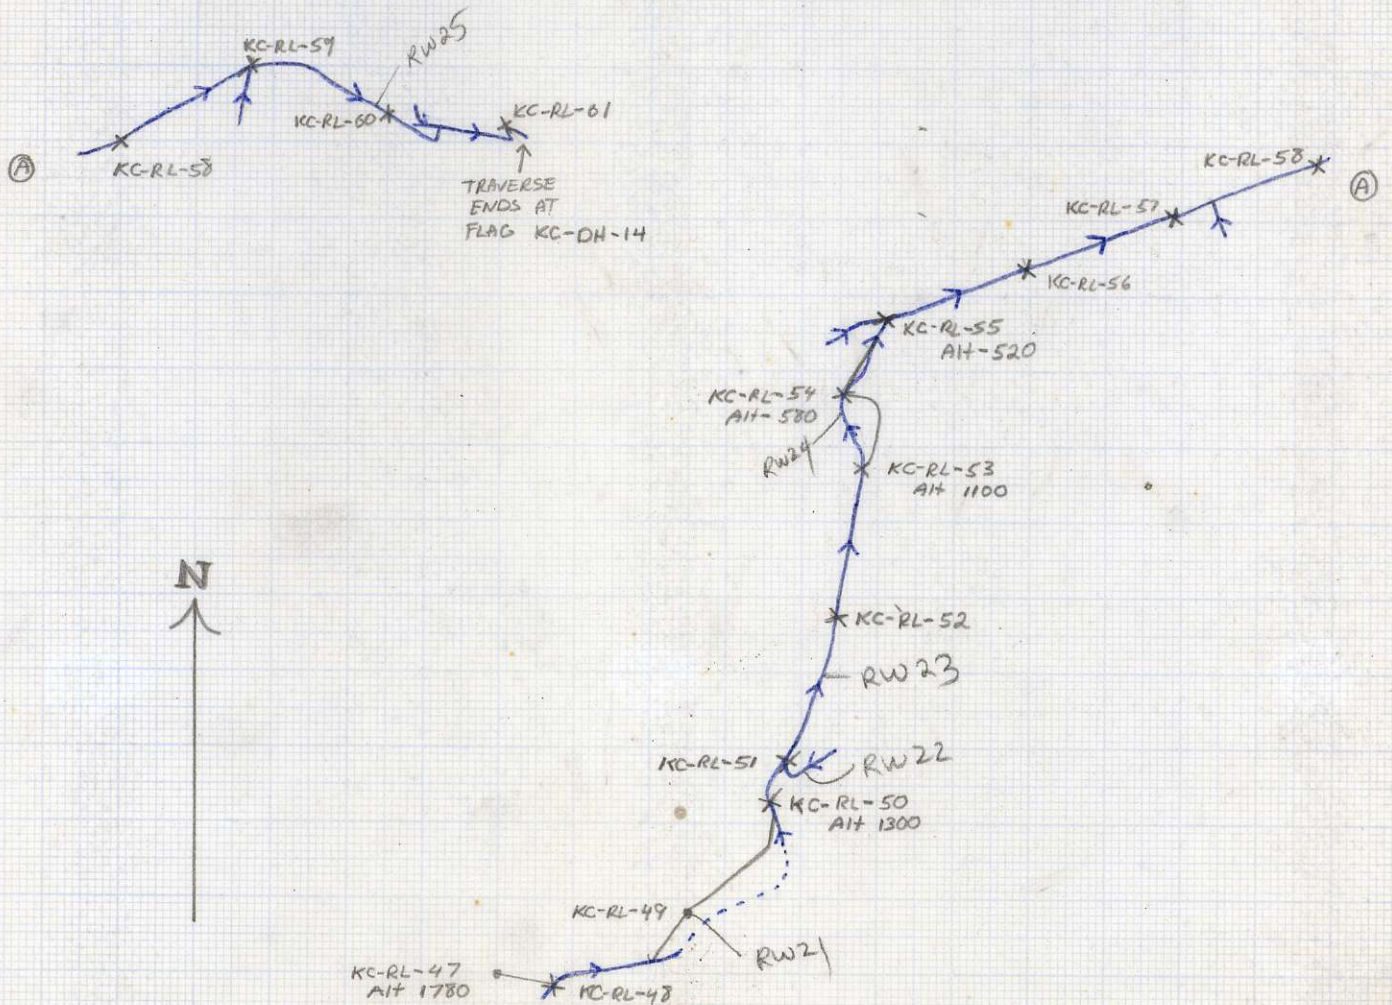 KC-RL-59
RW25
KC-RL-60
KC-RL-61
A
KC-RL-58
TRAVERSE
ENDS AT
FLAG KC-DH-14
KC-RL-58
A
KC-RL-57
KC-RL-56
KC-RL-55
Alt-520
KC-RL-54
Alt-580
RW24
KC-RL-53
Alt 1100
N
KC-RL-52
RW23
KC-RL-51
RW22
KC-RL-50
Alt 1300
KC-RL-49
RW21
KC-RL-47
Alt 1780
KC-RL-48